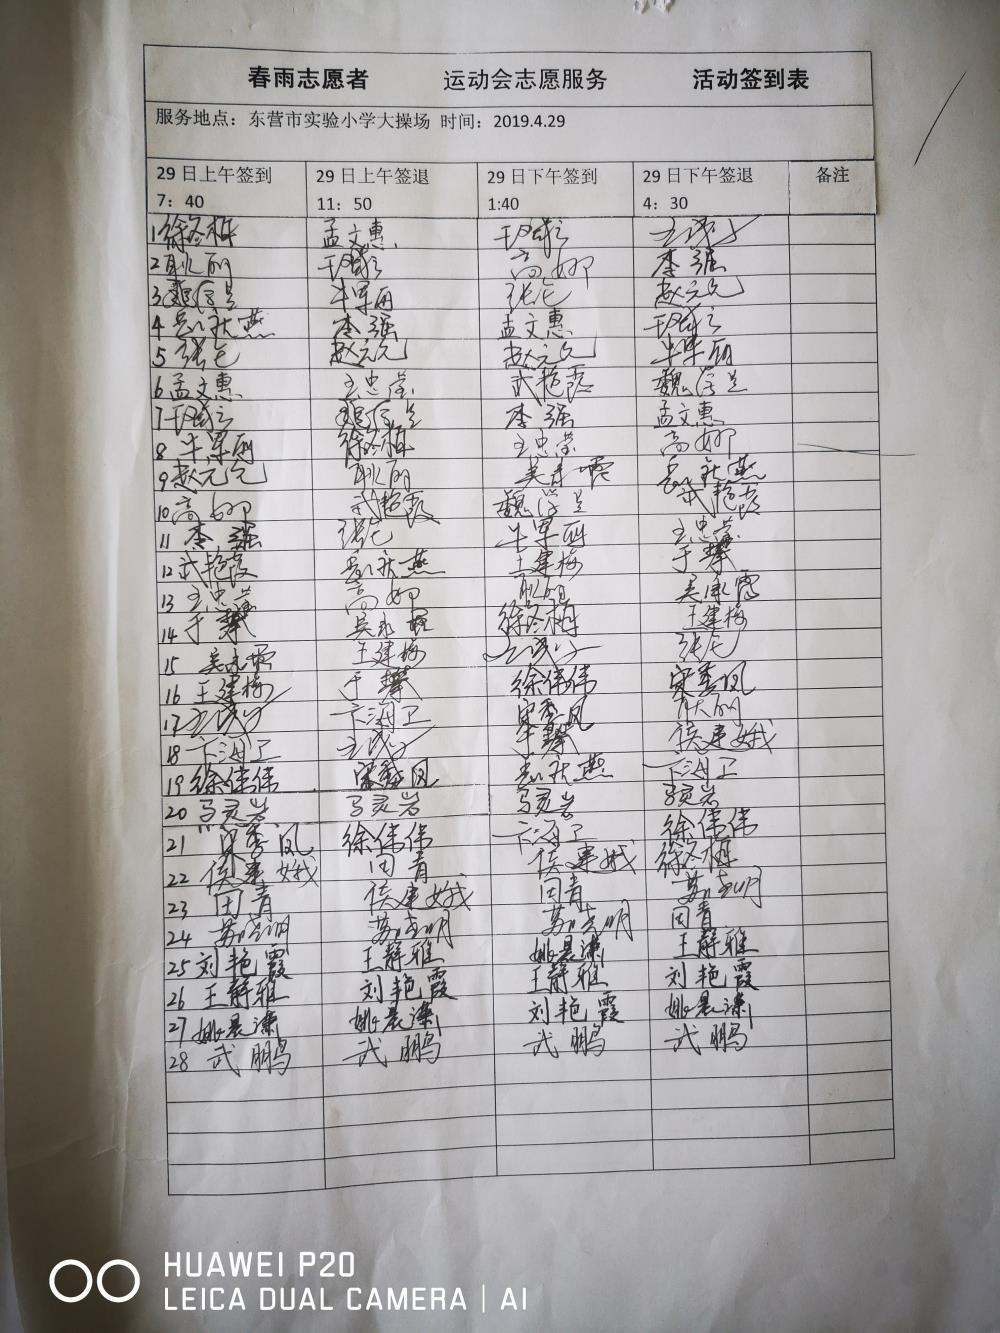 春雨志愿者 运动会志愿服务 活动签到表
服务地点：东营市实验小学大操场 时间：2019.4.29
29日上午签到 29日上午签退 29日下午签到 29日下午签退 备注
7：40 11：50 1:40 4：30
1 徐冬梅 孟文惠
2 耿丽 高娜 李强
3 魏倍兰 牛军丽 张伦 赵元元
4 袁秋燕 李强 孟文惠
5 张伦 赵元元 赵元元 牛军丽
6 孟文惠 王忠蓉 武艳霞 魏倍兰
7 魏倍兰 李强 孟文惠
8 牛军丽 徐冬梅 王忠蓉 高娜
9 赵元元 耿丽 袁秋燕
10 高娜 武艳霞 魏倍兰 武艳霞
11 李强 张伦 牛军丽 王忠蓉
12 武艳霞 袁秋燕 王建梅 于攀
13 王忠蓉 高娜 耿丽
14 于攀 徐冬梅 王建梅
15 王建梅 张伦
16 王建梅 于攀 徐伟伟 宋秀凤
17 卞海卫 宋秀凤 耿丽
18 卞海卫 于攀 侯建娥
19 徐伟伟 宋秀凤 袁秋燕 卞海卫
20 马灵岩 马灵岩 马灵岩 马灵岩
21 宋秀凤 徐伟伟 卞海卫 徐伟伟
22 侯建娥 田青 侯建娥 徐冬梅
23 田青 侯建娥 田青
24 田青
25 刘艳霞 王静雅 姚晨潇 王静雅
26 王静雅 刘艳霞 王静雅 刘艳霞
27 姚晨潇 姚晨潇 刘艳霞 姚晨潇
28 武鹏 武鹏 武鹏 武鹏
HUAWEI P20
LEICA DUAL CAMERA | AI